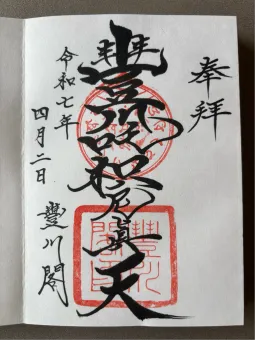 奉拝
豊川吒枳尼真天
令和七年
四月二日
豐川閣